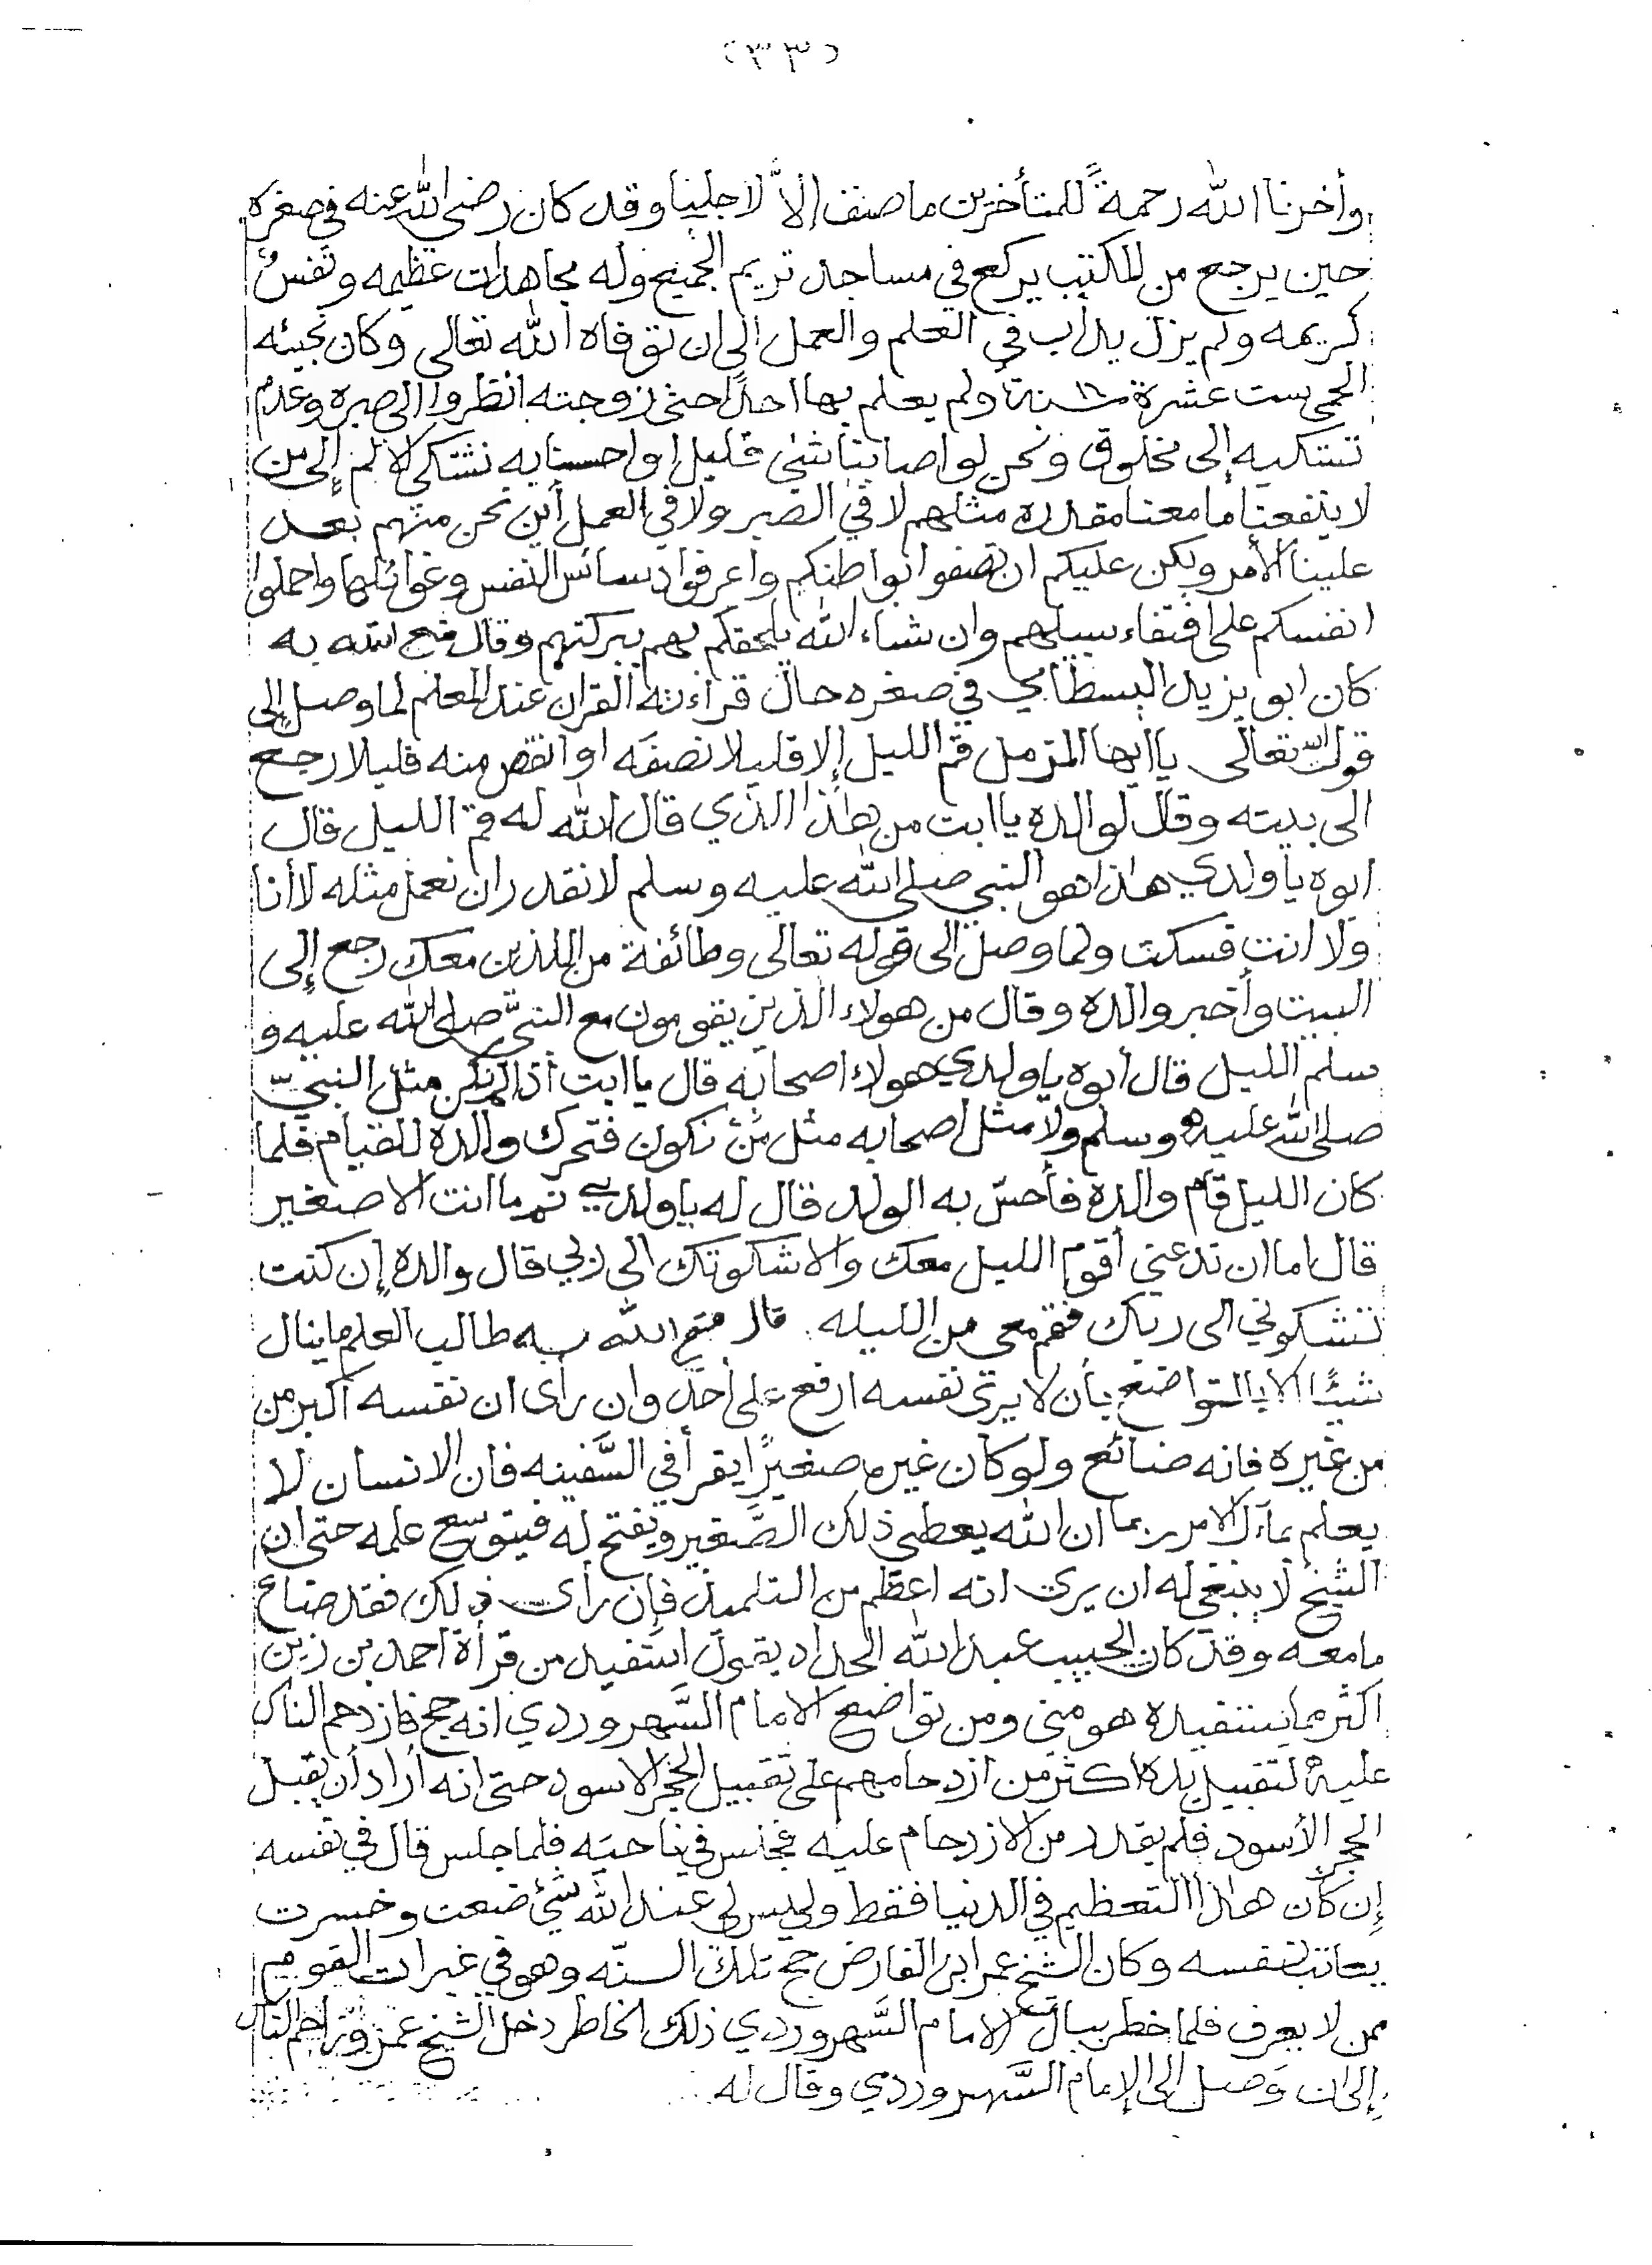 (٣٣)
وأخرنا الله رحمةً للمتأخرين ما صنف إلاّ لاجلنا وقد كان رضي الله عنه في صغره
حين يرجع من المكتب يركع في مساجد تريم الجميع وله مجاهدات عظيمه ونفسٌ
كريمه ولم يزل يدأب في العلم والعمل الى ان توفاه الله تعالى وكان تجيئه
الحمى ست عشرة ١٦ سنة ولم يعلم بها احداً حتى زوجته انظروا الى صبره وعدم
تشكيه إلى مخلوق ونحن لو اصابنا شئ قليل او احسينا به نشتكي الألم إلى من
لا ينفعنا ما معنا مقدره مثلهم لا في الصبر ولا في العمل أين نحن منهم بعد
علينا الأمر ولكن عليكم ان تصفوا بواطنكم واعرفوا دسائس النفس وغوائلها واحملوا
انفسكم على اقتفاء سبيلهم وان شاء الله يلحقكم بهم ببركتهم وقال متع الله به
كان ابو يزيد البسطامي في صغره حال قراءته القران عند المعلم لما وصل إلى
قول الله تعالى يا ايها المزمل قم الليل إلا قليلا نصفه او انقص منه قليلا رجع
الى بيته وقال لوالده يا ابت من هذا الذي قال الله له قم الليل قال
ابوه يا ولدي هذا هو النبي صلى الله عليه وسلم لا نقدر ان نعمل مثله لا أنا
ولا انت فسكت ولما وصل الى قوله تعالى وطائفة من اللذين معك رجع إلى
البيت وأخبر والده وقال من هولاء الذين يقومون مع النبيّ صلى الله عليه و
سلم الليل قال أبوه يا ولدي هولاء اصحابه قال يا ابت اذا لم نكن مثل النبيّ
صلى الله عليه وسلم ولا مثل اصحابه مثل مَنْ نكون فتحرك والده للقيام فلما
كان الليل قام والده فأحسّ به الولد قال له يا ولدي نم ما انت الا صغير
قال اما ان تدعني أقوم الليل معك والا شكوتك الى ربي قال والده إن كنت
تشكوني الى ربك فقم معي من الليله. قال متع الله به طالب العلم ما ينال
شيئًا الا بالتواضع بأن لا يرى نفسه ارفع على أحد وان رأى ان نفسه اكبر من
من غيره فانه ضائع ولو كان غيره صغيرًا يقرأ في السَّفينه فان الانسان لا
يعلم بمآل الامر ربما ان الله يعطي ذلك الصَّغير ويفتح له فيتوسع علمه حتى ان
الشيخ لا ينبغي له ان يرى انه اعظم من التلميذ فإن رأى ذلك فقد ضاع
ما معه وقد كان الحبيب عبد الله الحداد يقول استفيد من قرأة احمد بن زين
اكثر مما يستفيده هو مني ومن تواضع الامام السَّهروردي انه حج فازدحم الناس
عليه لتقبيل يده اكثر من ازدحامهم على تقبيل الحجر الاسود حتى انه أراد أن يقبل
الحجر الأسود فلم يقدر من الازدحام عليه فجلس في ناحيه فلما جلس قال في نفسه
إن كان هذا التعظيم في الدنيا فقط وليس لي عند الله شئ ضعت وخسرت
يعاتب نفسه وكان الشيخ عمر ابن الفارض حج تلك السنّه وهو في غبرات القوم
ممن لا يعرف فلما خطر ببال الامام السَّهروردي ذلك الخاطر دخل الشيخ عمر وزاحم الناس
إلى ان وَصل الى الإمام السَّهروردي وقال له